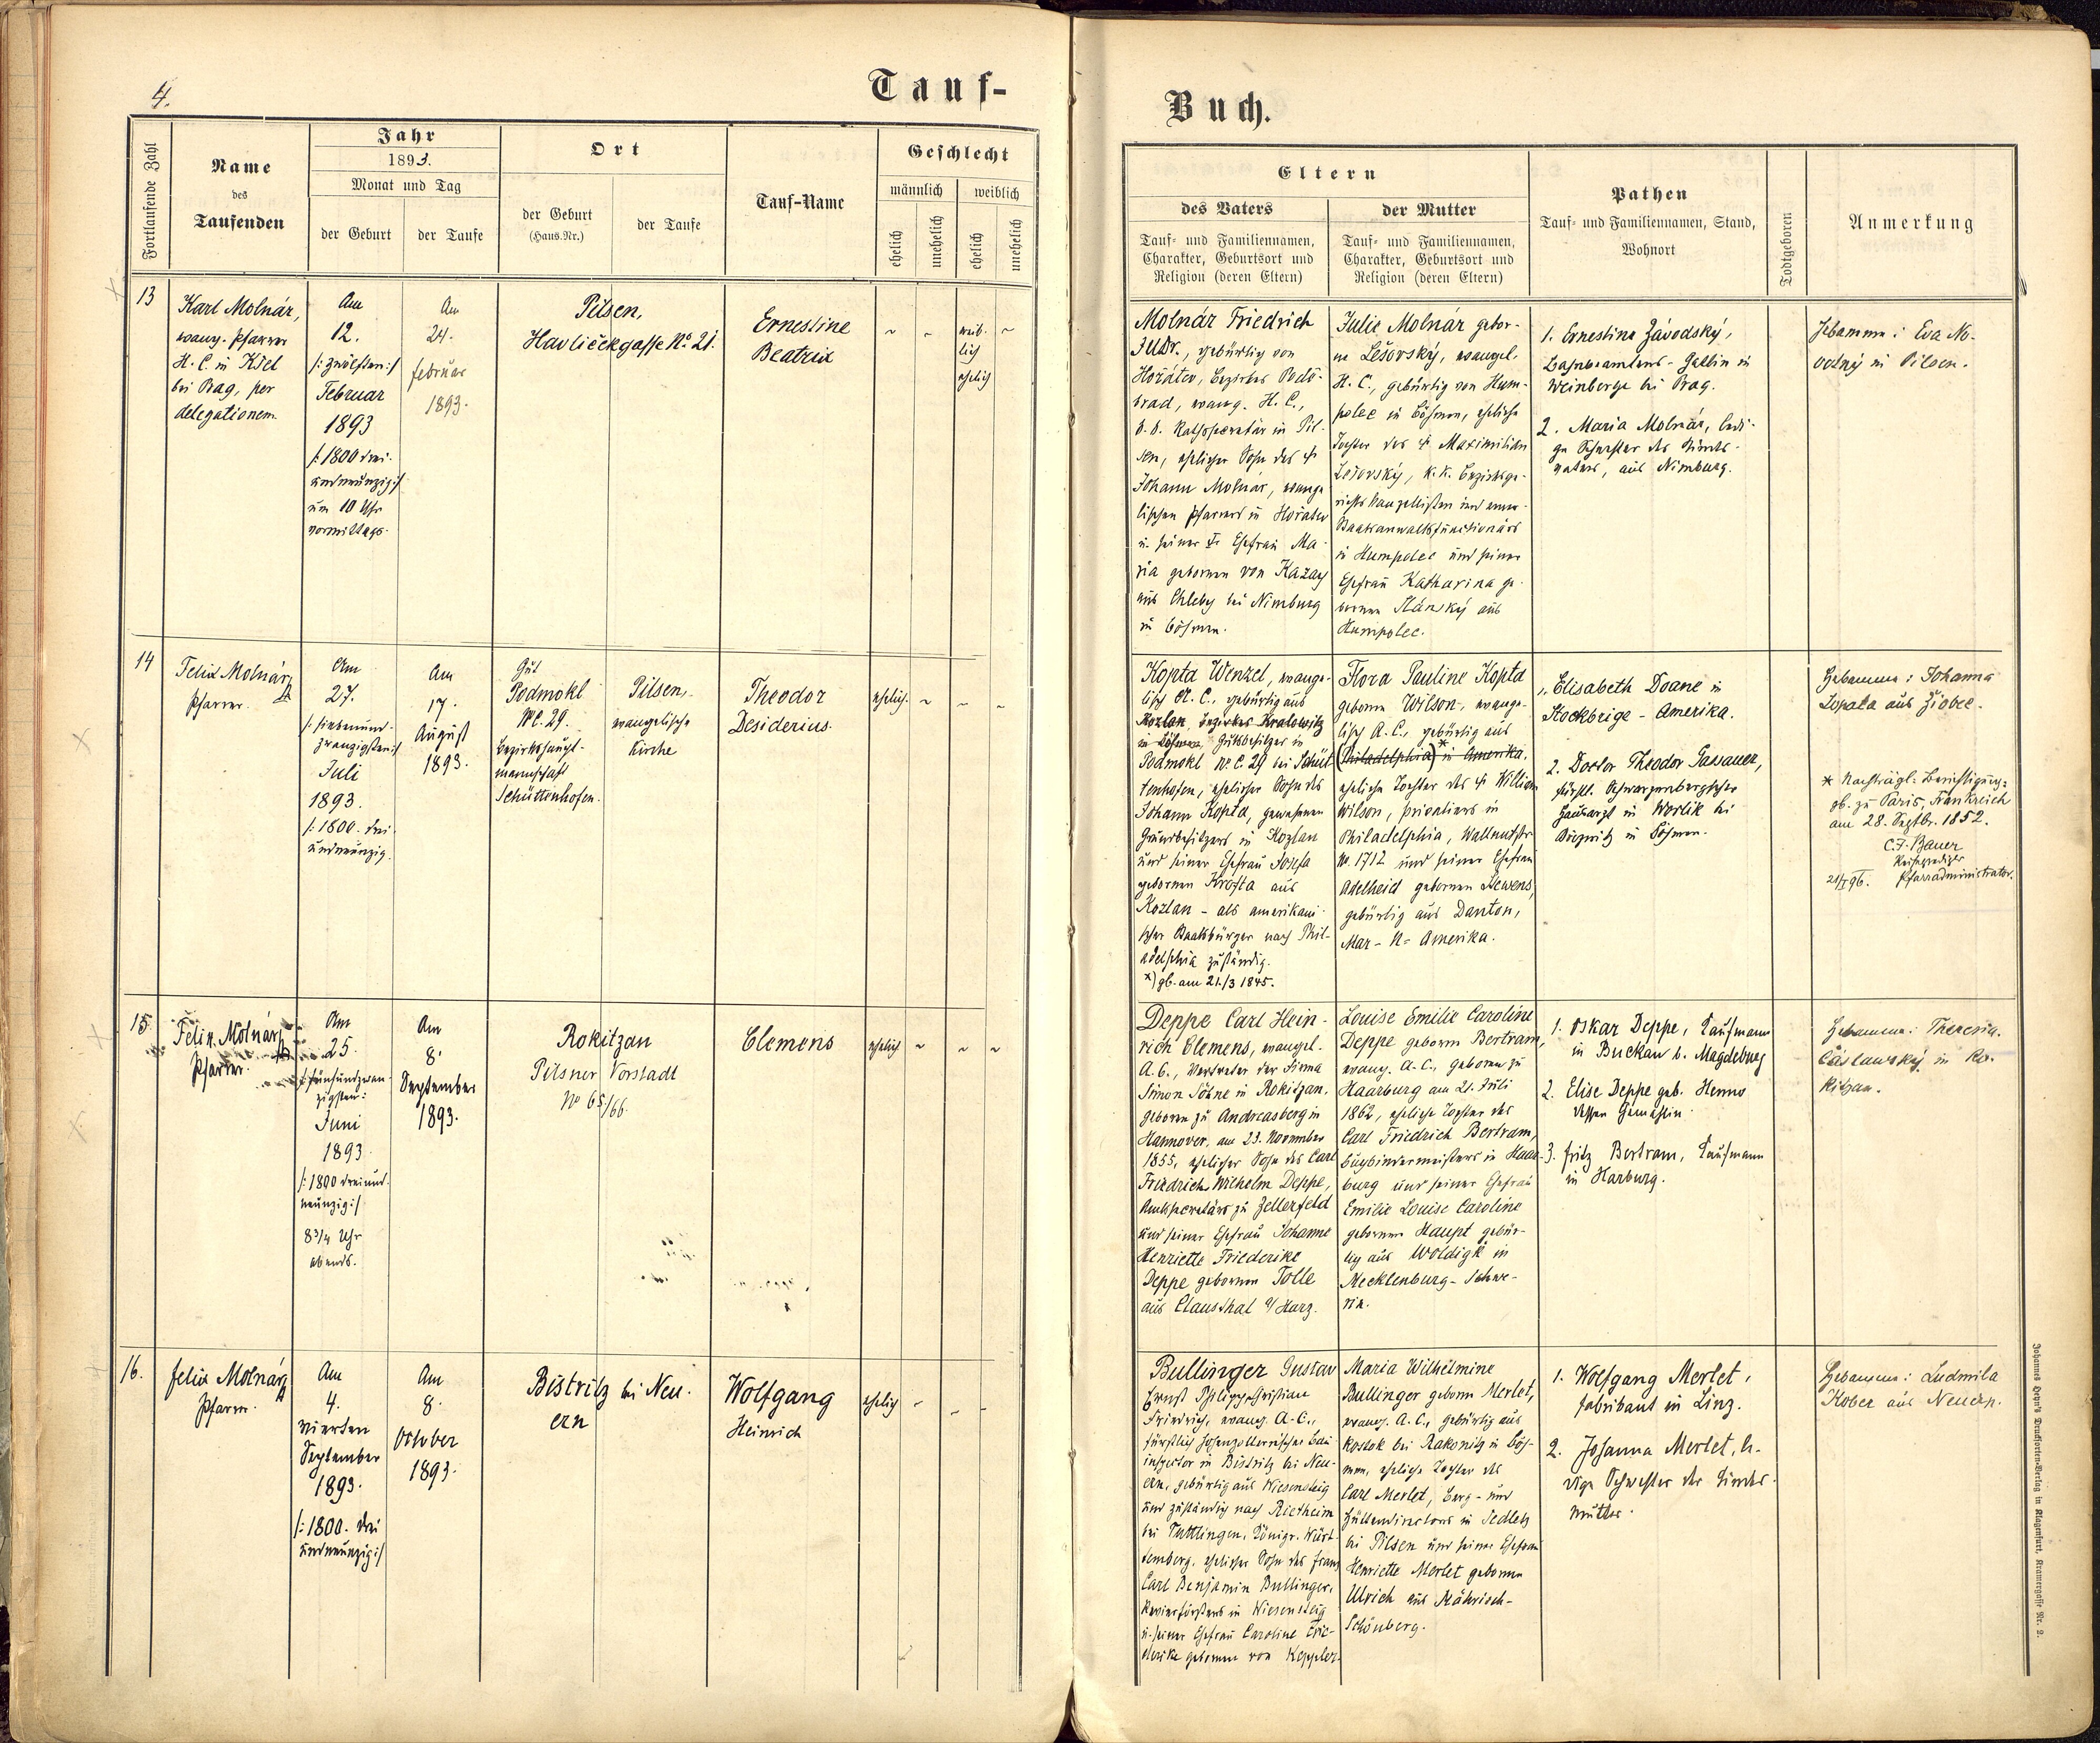 4.
Tauf-
Fortlaufende Zahl
Name
des
Taufenden
Jahr
1893.
Monat und Tag
der Geburt
der Taufe
Ort
der Geburt
(Haus-Nr.)
der Taufe
Tauf-Name
Geschlecht
männlich
weiblich
ehelich
unehelich
ehelich
unehelich
13
Karl Molnár,
evang. Pfarrer
H. C. in Kšel
bei Prag, per
delegationem.
Am
12.
/: zwölften :/
Februar
1893
/: 1800 drei-
undneunzig :/
um 10 Uhr
vormittags.
Am
24.
Februar
1893.
Pilsen,
Havlíčekgasse No. 21.
Ernestine
Beatrix
weib-
lich
ehelich
14
Felix Molnár,
Pfarrer.
Am
27.
/: siebenund-
zwanzigsten :/
Juli
1893.
/: 1800. drei-
undneunzig.
Am
17.
August
1893.
Gut
Podmokl
No C. 29.
Bezirkshaupt-
mannschaft
Schüttenhofen.
Pilsen,
evangelische
Kirche
Theodor
Desiderius.
ehelich.
15
Felix Molnár,
Pfarrer.
Am
25.
/: fünfundzwan-
zigsten :
Juni
1893.
/: 1800 dreiund-
neunzig :/
8 3/4 Uhr
abends.
Am
8.
September
1893.
Rokitzan
Pilsner Vorstadt
No 65/66.
Clemens
ehelich
16.
Felix Molnár,
Pfarrer.
Am
4.
vierten
September
1893.
/: 1800. drei
undneunzig :/
Am
8.
October
1893.
Bistritz bei Neu-
ern
Wolfgang
Heinrich
ehelich
Buch.
Eltern
des Vaters
Tauf- und Familiennamen,
Charakter, Geburtsort und
Religion (deren Eltern)
der Mutter
Tauf- und Familiennamen,
Charakter, Geburtsort und
Religion (deren Eltern)
Pathen
Tauf- und Familiennamen, Stand,
Wohnort
Todtgeboren
Anmerkung
Molnár Friedrich
JUDr., gebürtig von
Hořátev, Bezirkes Podě-
brad, evang. H. C.,
Rathssecretär in Pil-
sen, ehelicher Sohn des †
Johann Molnár, evange
lischen Pfarrers in Hořátev
u. seiner Ehefrau Ma-
ria geborenen von Kazay
aus Chleby bei Nimburg
in Böhmen.
Julie Molnár gebor-
ne Lešovský, evangel.
H. C., gebürtig von Hum-
polec in Böhmen, eheliche
Tochter des † Maximilian
Lešovský, k. k. Bezirksge-
richts Kanzellisten und
Staatsanwaltsfunctionärs
in Humpolec und seiner
Ehefrau Katharina ge-
bornen Slánský aus
Humpolec.
1. Ernestine Závodský,
Bahnbeamtens-Gattin in
Weinberge bei Prag.
2. Maria Molnár, ledi-
ge Schwester des Kindes-
vaters, aus Nimburg.
Hebamme: Eva No-
votný in Pilsen.
Kopta Wenzel, evange-
lisch H. C., gebürtig aus
Kozlan Bezirkes Kralowitz
in Böhmen, Gutsbesitzer in
Podmokl No C. 29 bei Schüt
tenhofen, ehelicher Sohn des
Johann Kopta, gewesenen
Grundbesitzers in Kozlan
und seiner Ehefrau Josefa
gebornen Krofta aus
Kozlan - als amerikani-
scher Staatsbürger nach Phil-
adelphia zuständig.
*) gb. am 21./3 1845.
Flora Pauline Kopta
geborne Wilson, evange-
lisch A. C., gebürtig aus
(Philadelphia)* in Amerika.
eheliche Tochter des † William
Wilson, privatiers in
Philadelphia, Wallnutstr.
No. 1712 und seiner Ehefrau
Adelheid gebornen Stewens,
gebürtig aus Danton,
Mar- N= Amerika.
1. Elisabeth Doane in
Stockbrige - Amerika.
2. Doctor Theodor Passauer,
fürstl. Schwarzenbergischer
Hausarzt in Worlik bei
in Böhmen.
Hebamme: Johanna
Lopata aus Žiobec.
* Nachträgl. Berichtigung:
gb. zu Paris, Frankreich
am 28. Septbr. 1852.
C.F. Bauer
Reiseprediger
21/I 96. Pfarradministrator.
Deppe Carl Hein-
rich Clemens, evangel.
A. C., Vertreter der Firma
Simon Söhne in Rokitzan,
geboren zu Andreasberg in
Hannover, am 23. November
1855, ehelicher Sohn des Carl
Friedrich Wilhelm Deppe,
Amtssecretärs zu Zellerfeld
und seiner Ehefrau Johanne
Henriette Friederike
Deppe gebornen Tolle
aus Clausthal a/ Harz.
Louise Emilie Caroline
Deppe geborne Bertram,
evang. A. C., geboren zu
Haarburg am 21. Juli
1862, eheliche Tochter des
Carl Friedrich Bertram,
Buchbindermeisters in Haar-
burg und seiner Ehefrau
Emilie Louise Caroline
gebornen Haupt gebür-
tig aus Woldigk in
Mecklenburg-Schwe-
rin.
1. Oskar Deppe, Kaufmann
in Buckau b. Magdeburg
2. Elise Deppe geb. Henno
dessen Gemahlin.
3. Fritz Bertram, Kaufmann
in Harburg.
Hebamme: Theresia
Čáslawský in Ro-
kitzan.
Bullinger Gustav
Ernst Philipp Christian
Friedrich, evang. A. C.,
fürstlich Hohenzollernscher Bau
inspector in Bistritz bei Neu-
ern, gebürtig aus Wiesensteig
und zuständig nach Rietheim
bei Tuttlingen, Königr. Würt-
temberg, ehelicher Sohn des Franz
Carl Benjamin Bullinger,
Revierförsters in Wiesensteig
u. seiner Ehefrau Caroline Frie-
derike gebornen von Keppler.
Maria Wilhelmine
Bullinger geborne Merlet,
evang. A. C., gebürtig aus
Rostok bei Rakonitz in Böh-
men, eheliche Tochter des
Carl Merlet, Berg- und
Hüttendirectors in Sedletz
bei Pilsen und seiner Ehefrau
Henriette Merlet gebornen
Ulrich aus Mährisch-
Schönberg.
1. Wolfgang Merlet,
Fabrikant in Linz.
2. Johanna Merlet, le-
dige Schwester der Kindes-
mutter.
Hebamme: Ludmila
Kober aus Neuern.
Johannes Heyn's Drucksorten-Verlag in Klagenfurt, Kramergasse Nr. 2.